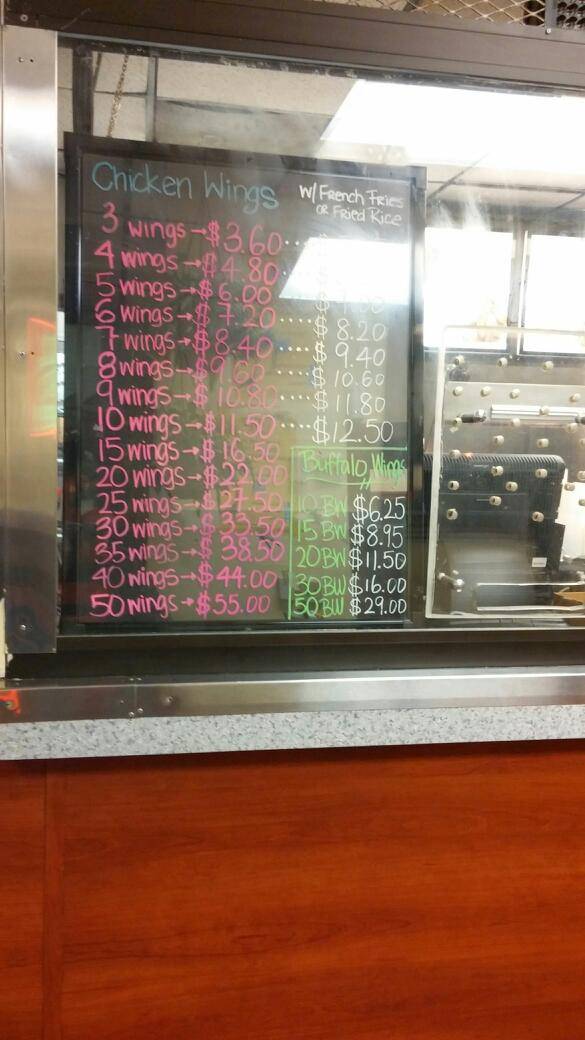 Chicken Wings
W/ French Fries
or Fried Rice
3 wings → $3.60 ....
4 wings → $4.80
5 wings → $6.00
6 wings → $7.20 ..... $8.20
7 wings → $8.40 .... $9.40
8 wings → $9.60 .... $10.60
9 wings → $10.80 .... $11.80
10 wings → $11.50 .... $12.50
15 wings → $16.50
20 wings → $22.00
25 wings → $27.50
30 wings → $33.50
35 wings → $38.50
40 wings → $44.00
50 wings → $55.00
Buffalo Wings
10 BW $6.25
15 BW $8.95
20 BW $11.50
30 BW $16.00
50 BW $29.00